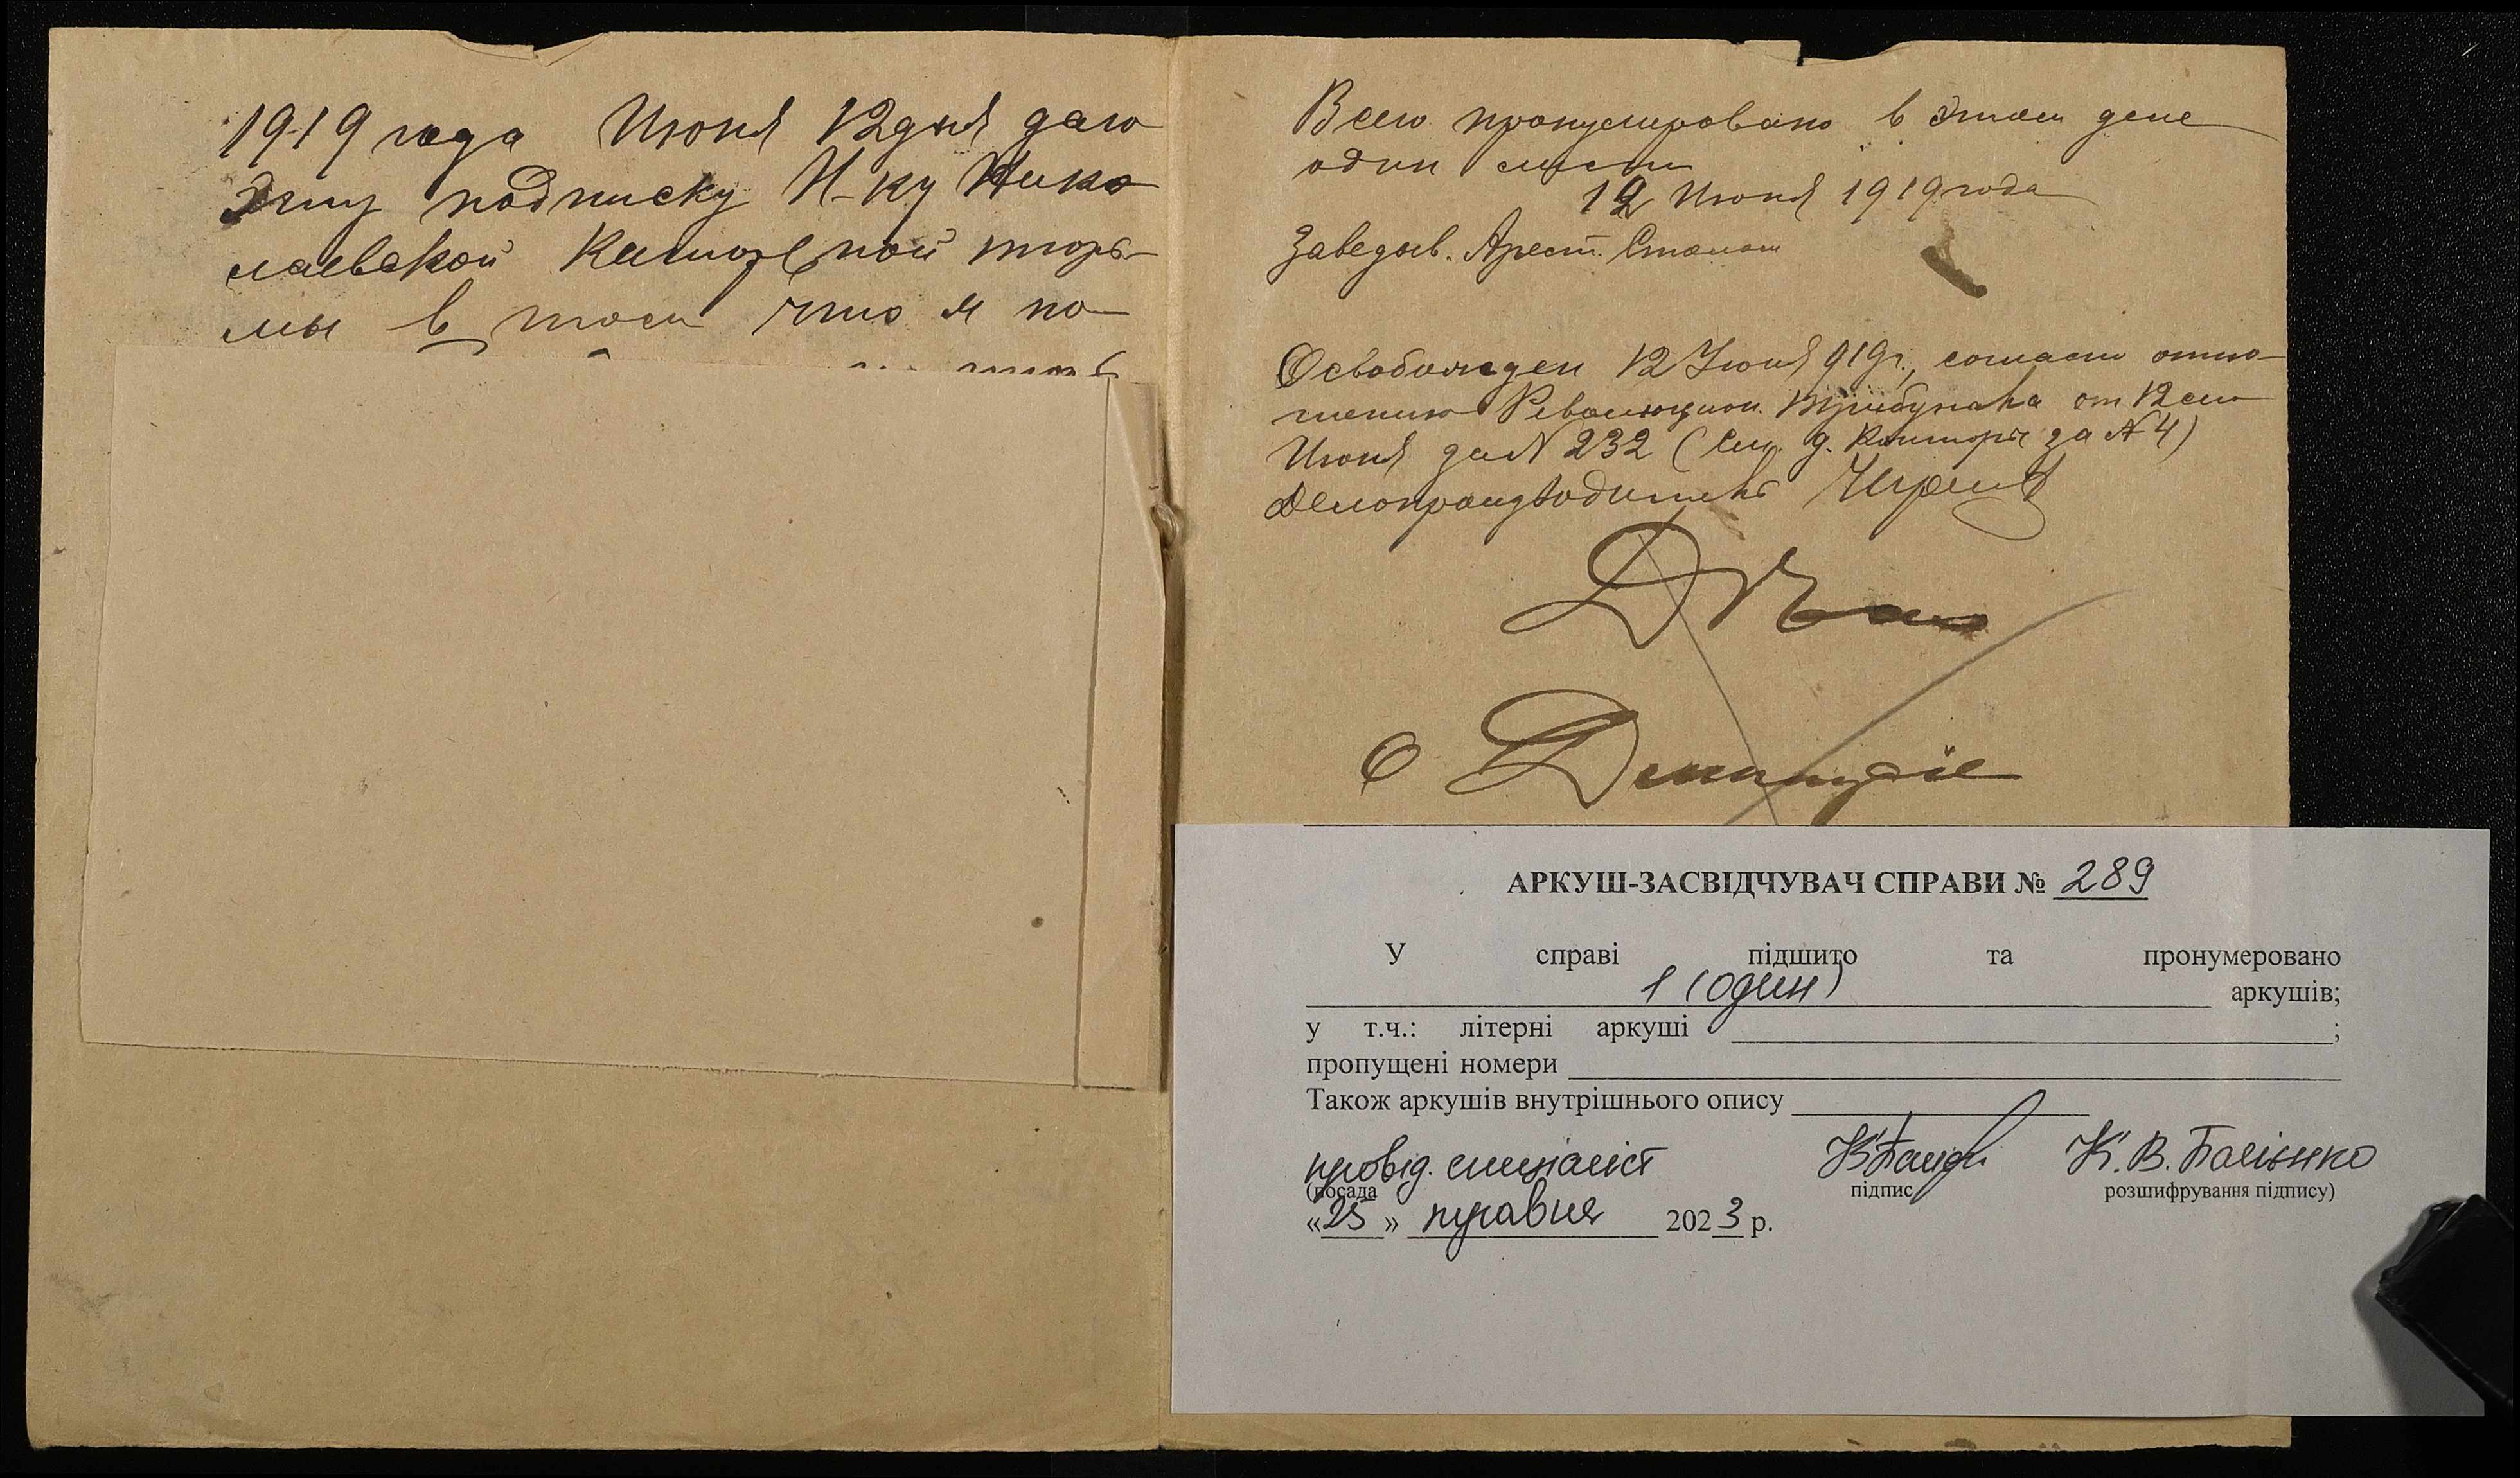 1919 года Июня 12 дня даю
эту подписку Н-ку Нико
лаевской Каторжной тюрь-
мы в том что я по-
Всего пронумеровано в этом деле
один лист
12 Июня 1919 года
Заведыв. Арест. Столом
Освобожден 12 Июня 919г., согласно отно-
шению Революцион. Трибунала от 12 сего
Июня за № 232 (см. д. Конторы за № 4)
Делопроизводитель
Дело
О
АРКУШ-ЗАСВІДЧУВАЧ СПРАВИ № 289
У справі підшито та пронумеровано
1 (один) аркушів;
у т.ч.: літерні аркуші ;
пропущені номери
Також аркушів внутрішнього опису
провід. спеціаліст К. В.
(посада підпис розшифрування підпису)
«25» травня 2023 р.